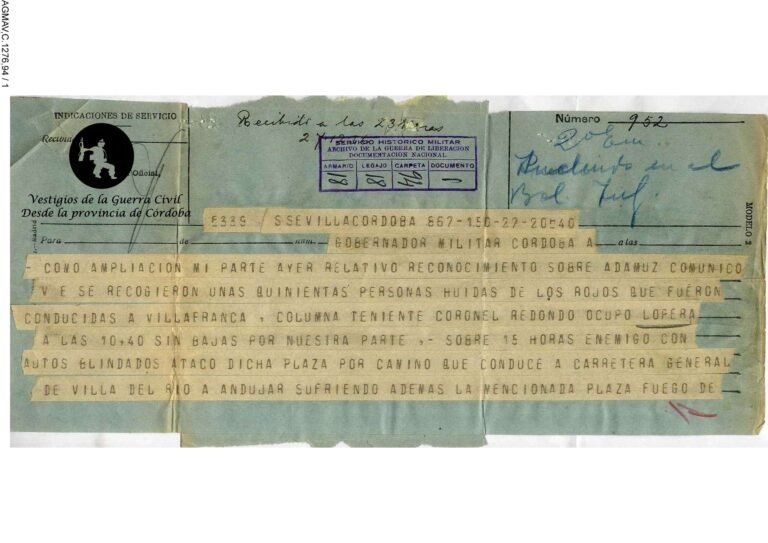 AGMAV,C.1276,94 / 1
INDICACIONES DE SERVICIO
Recibido a las 23 horas
Número 952
Oficial,
SERVICIO HISTORICO MILITAR
ARCHIVO DE LA GUERRA DE LIBERACION
DOCUMENTACION NACIONAL
ARMARIO LEGAJO CARPETA DOCUMENTO
18 18 1
en el
Vestigios de la Guerra Civil
Desde la provincia de Córdoba
MODELO 2
8339 / SSEVILLACORDOBA 867-150-27-20840
Para de núm. a las
GOBERNADOR MILITAR CORDOBA A
- COMO AMPLIACION MI PARTE AYER RELATIVO RECONOCIMIENTO SOBRE ADAMUZ COMUNICO
V E SE RECOGIERON UNAS QUINIENTAS PERSONAS HUIDAS DE LOS ROJOS QUE FUERON
CONDUCIDAS A VILLAFRANCA , COLUMNA TENIENTE CORONEL REDONDO OCUPO LOPERA
A LAS 10,40 SIN BAJAS POR NUESTRA PARTE ,- SOBRE 15 HORAS ENEMIGO CON
AUTOS BLINDADOS ATACO DICHA PLAZA POR CAMINO QUE CONDUCE A CARRETERA GENERAL
DE VILLA DEL RIO A ANDUJAR SUFRIENDO ADEMAS LA MENCIONADA PLAZA FUEGO DE